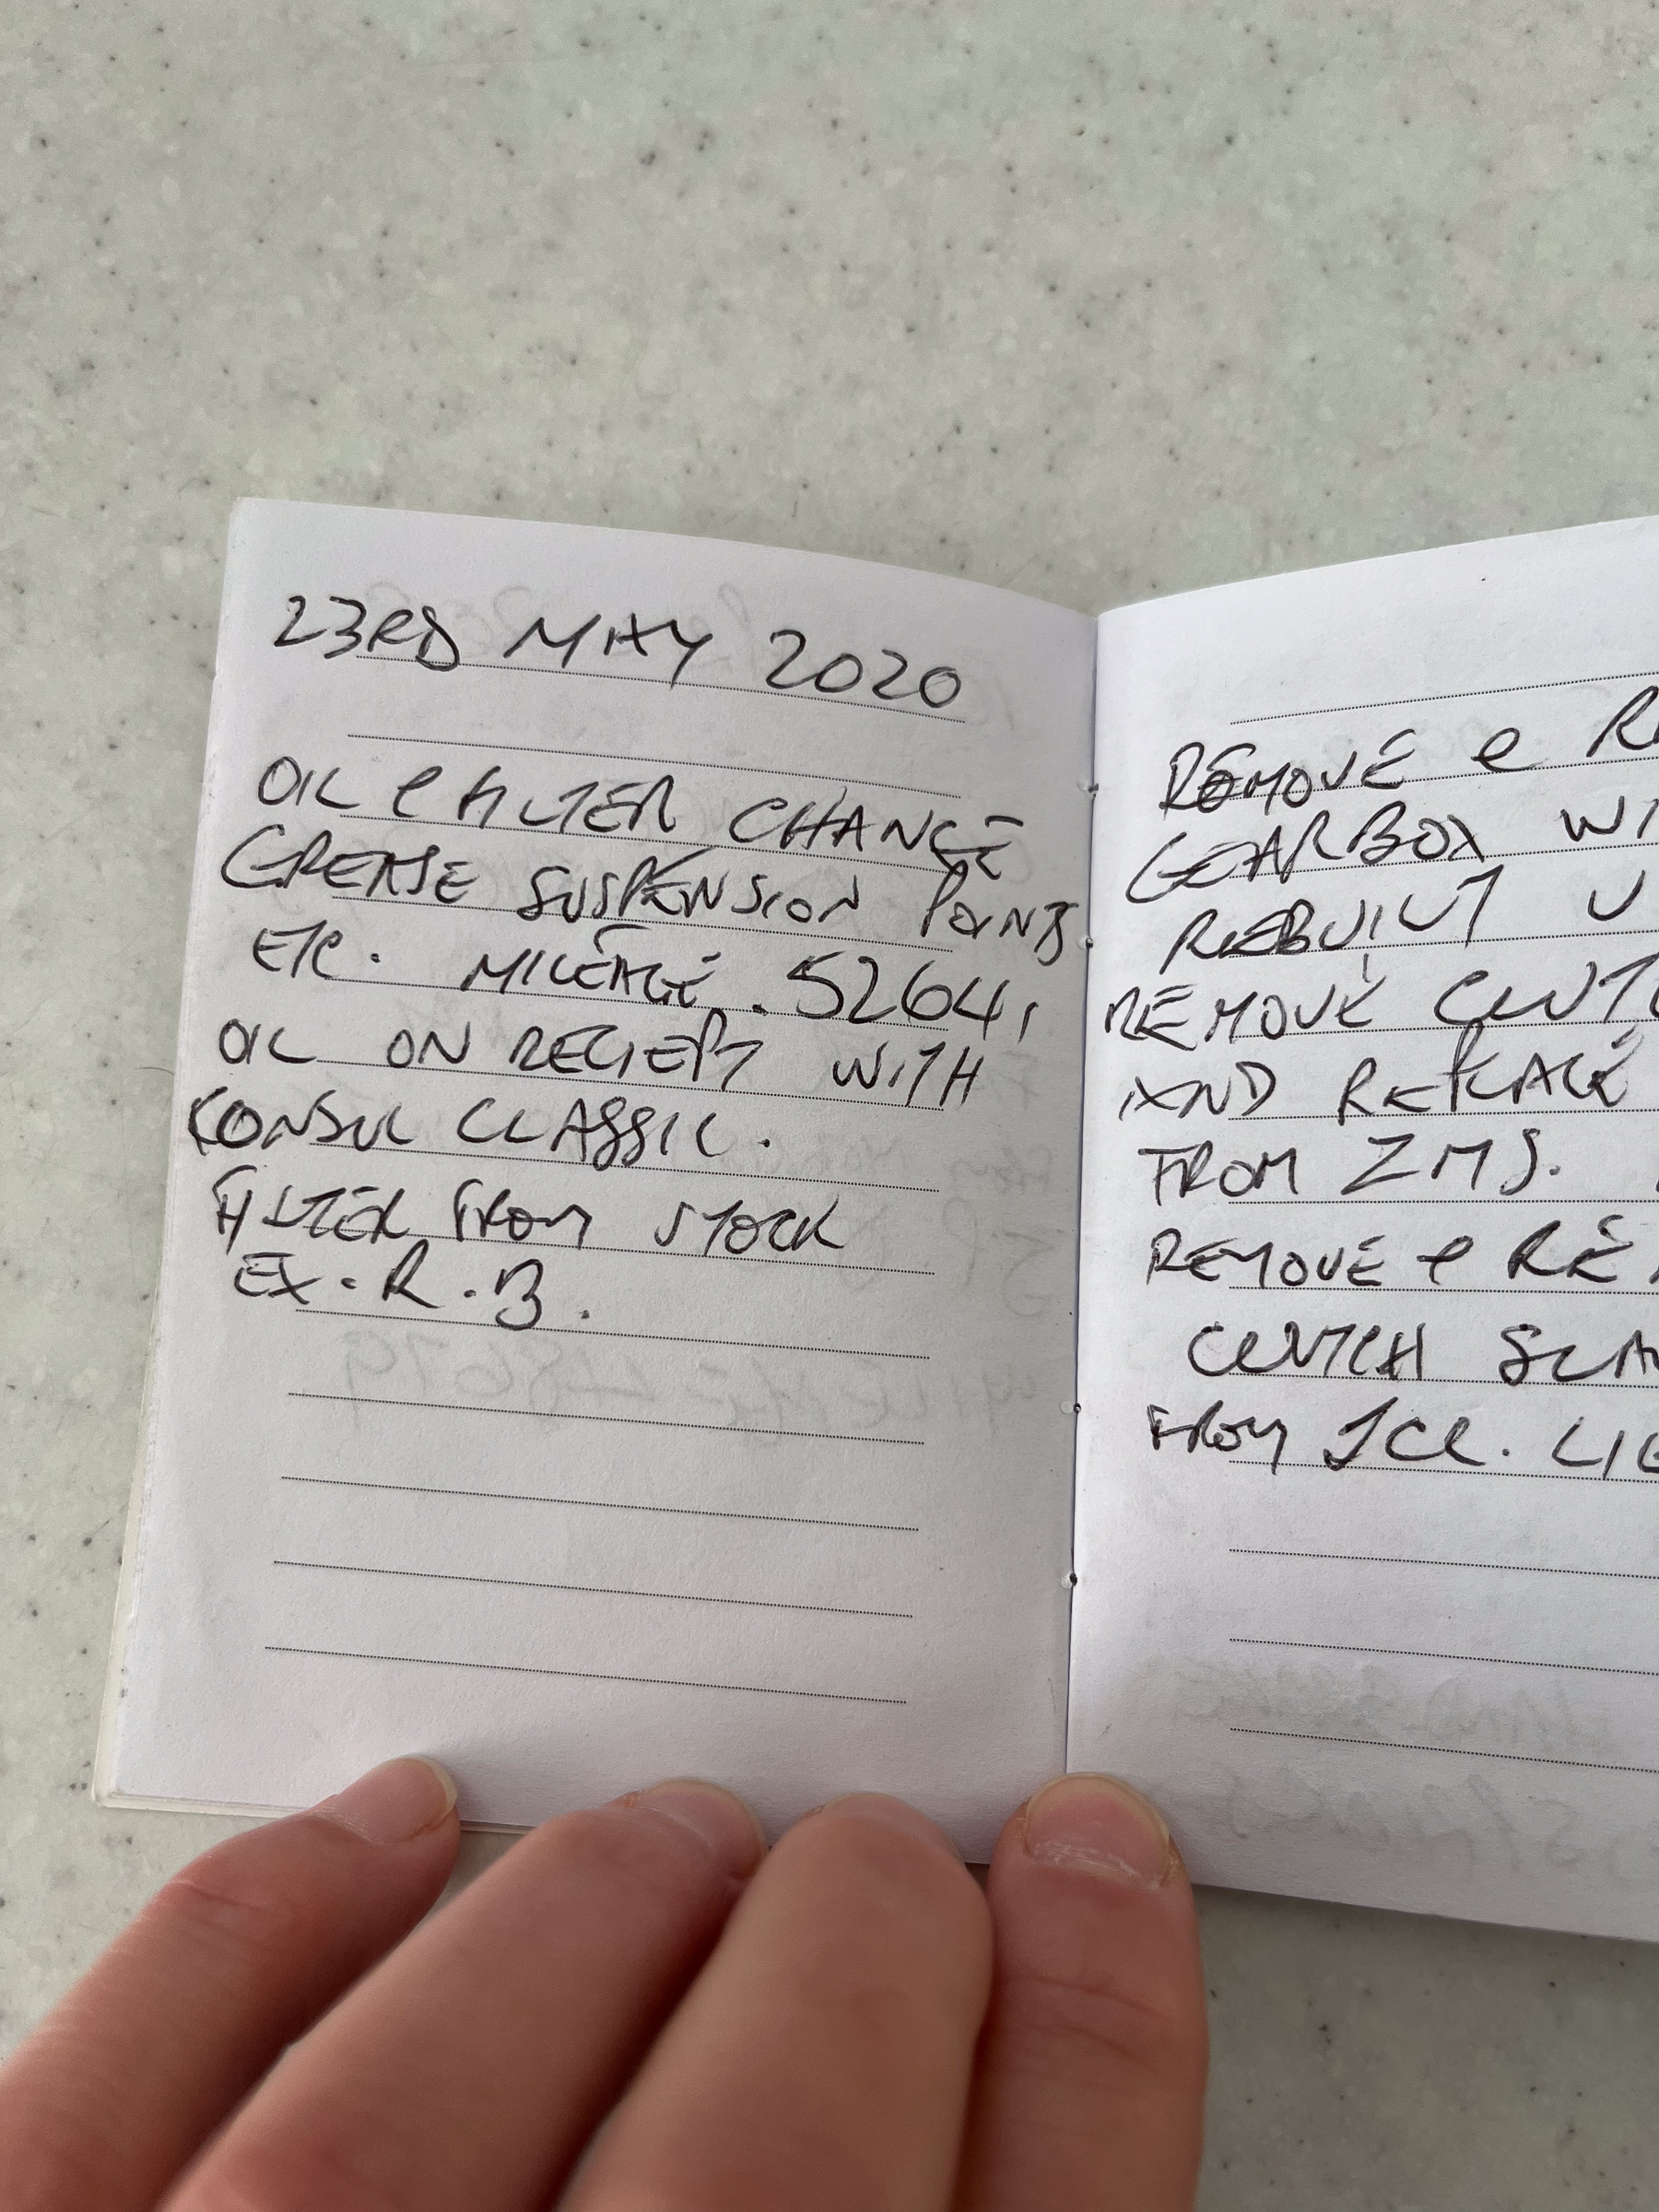 23RD MAY 2020
OIL & FILTER CHANGE
GREASE SUSPENSION POINTS
ETC. MILEAGE. 52641
OIL ON RECIEPT WITH
KONSUL CLASSIC.
FILTER FROM STOCK
EX. R.B.
REMOVE & R
GEARBOX WI
REBUILT U
REMOVE CLUTC
AND REPLACE
FROM ZMS.
REMOVE & RE
CLUTCH SLA
FROM JCR. LIE